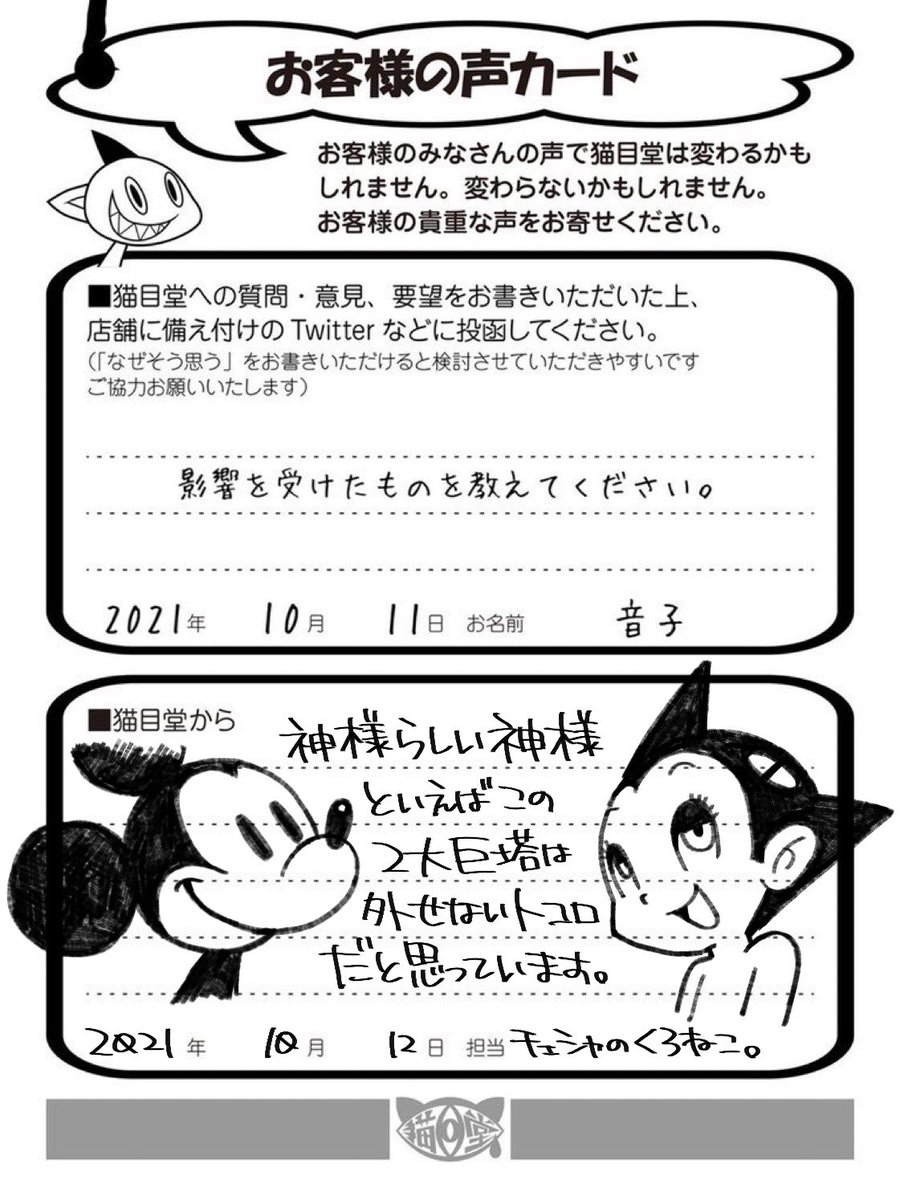 お客様の声カード
お客様のみなさんの声で猫目堂は変わるかも
しれません。変わらないかもしれません。
お客様の貴重な声をお寄せください。
■猫目堂への質問・意見、要望をお書きいただいた上、
店舗に備え付けの Twitter などに投函してください。
(「なぜそう思う」をお書きいただけると検討させていただきやすいです
ご協力お願いいたします)
影響を受けたものを教えてください。
2021年 10月 11日 お名前 音子
■猫目堂から
神様らしい神様
といえばこの
2大巨塔は
外せないトコロ
だと思っています。
2021年 10月 12日 担当 チェシャのくろねこ。
猫目堂